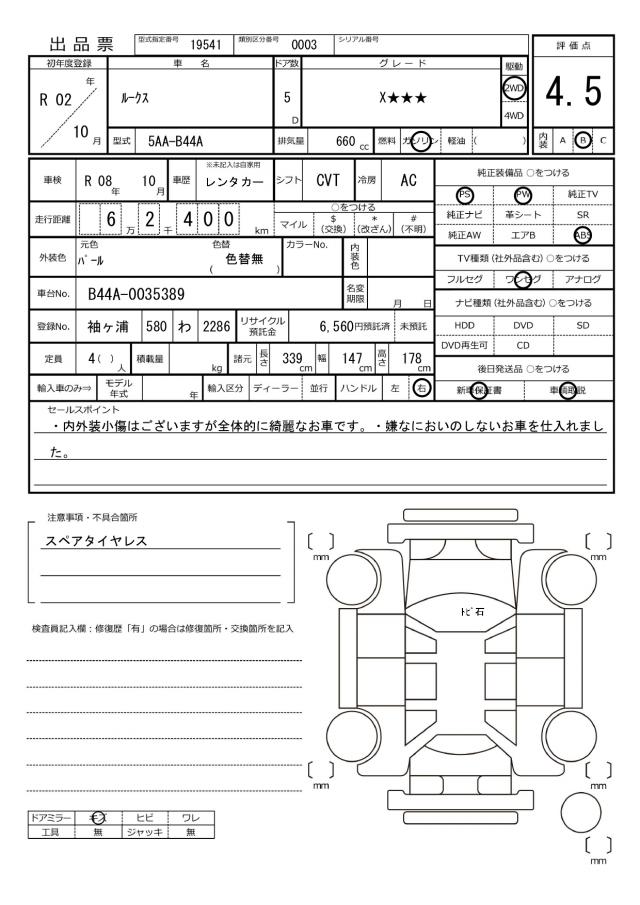 出品票 型式指定番号 19541 類別区分番号 0003 シリアル番号
評価点
4.5
内装 A B C
初年度登録 車名 ドア数 グレード 駆動
R 02 年 10 月
ルークス 5 D X★★★ 2WD 4WD
型式 5AA-B44A 排気量 660 cc 燃料 ガソリン 軽油 ( )
車検 R 08 年 10 月 車歴 ※未記入は自家用 レンタカー シフト CVT 冷房 AC
走行距離 6 万 2 千 4 0 0 km
○をつける
マイル $ (交換) * (改ざん) # (不明)
外装色 元色 パール 色替 ( 色替無 ) カラーNo. 内装色
車台No. B44A-0035389 名変期限 月 日
登録No. 袖ヶ浦 580 わ 2286 リサイクル預託金 6,560円預託済 未預託
定員 4( )人 積載量 kg 諸元 長さ 339cm 幅 147cm 高さ 178cm
輸入車のみ⇒ モデル年式 年 輸入区分 ディーラー 並行 ハンドル 左 右
純正装備品 ○をつける
PS PW 純正TV
純正ナビ 革シート SR
純正AW エアB ABS
TV種類 (社外品含む) ○をつける
フルセグ ワンセグ アナログ
ナビ種類 (社外品含む) ○をつける
HDD DVD SD
DVD再生可 CD
後日発送品 ○をつける
新車保証書 車輌取説
セールスポイント
・内外装小傷はございますが全体的に綺麗なお車です。・嫌なにおいのしないお車を仕入れまし
た。
注意事項・不具合箇所
スペアタイヤレス
検査員記入欄：修復歴「有」の場合は修復箇所・交換箇所を記入
〔 〕mm
〔 〕mm
トビ石
〔 〕mm
〔 〕mm
〔 〕mm
ドアミラー キズ ヒビ ワレ
工具 無 ジャッキ 無